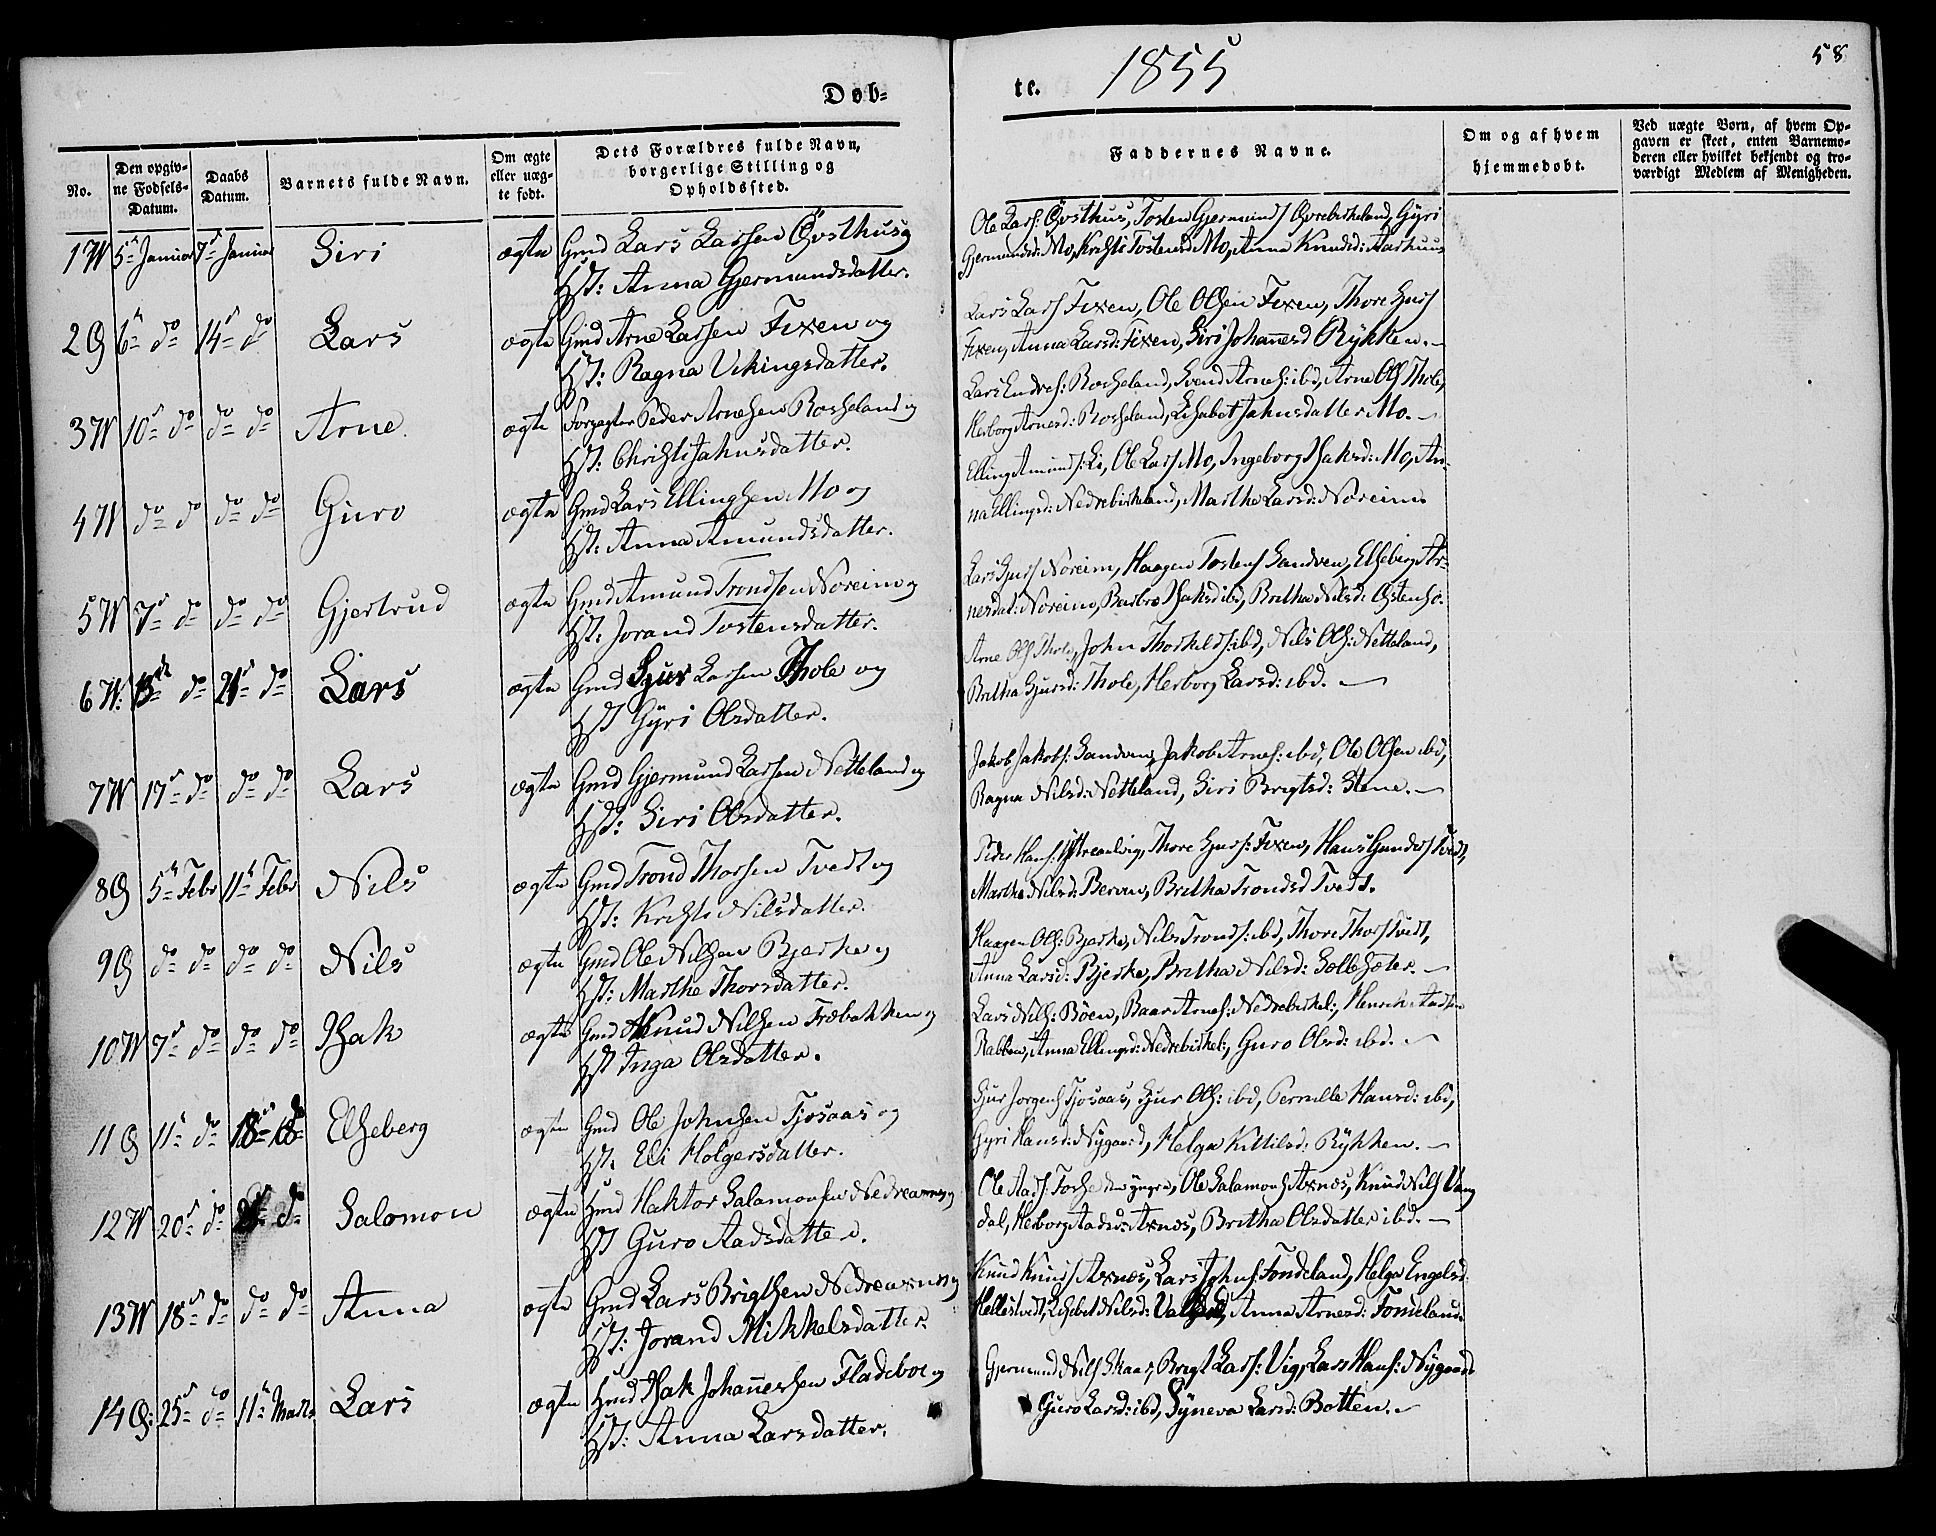 Døb=
te. 1855
58
No.
Den opgiv-
ne Fødsels-
Datum.
Daabs
Datum.
Barnets fulde Navn.
Om ægte
eller uæg-
te født.
Dets Forældres fulde Navn,
borgerlige Stilling og
Opholdssted.
Faddernes Navne.
Om og af hvem
hjemmedøbt.
Ved uægte Børn, af hvem Op-
gaven er skeet, enten Barnemo-
deren eller hvilket bekjendt og tro-
værdigt Medlem af Menigheden.
1 W 5te Januar 7de Januar Siri ægte Gmd Lars Larsen Øvsthus og
Hst: Anna Gjermundsdatter.
Ole Lars: Øvsthus, Tosten Gjermunds Øvrebirkeland, Gÿri
Gjermundsd: Mo, Kristi Tostensd Mo, Anna Knudsd: Aarhuus
2 Ø 6te do 14de do Lars ægte Gmd Arne Larsen Fixen og
Hst: Ragna Vikingsdatter.
Lars Lars Fixen, Ole Olsen Fixen, Thore Sjurs
Fixen, Anna Larsd: Fixen, Siri Johannesd Rÿkken.
3 W 10de do do do Arne ægte Forpagter Peder Arnesen Rosseland og
Hst: Christi Jahnsdatter.
Lars Endres: Rosseland, Svend Arnes: ibd, Arne Ols Thole,
Herborg Arnesd: Rosseland, Lisabet Jahnsdatter Mo.
4 W do do do do Guro ægte Gmd Lars Ellingsen Mo og
Hst: Anna Amundsdatter.
Elling Amunds: Li, Ole Lars Mo, Ingeborg Isaksd: Mo, An-
na Ellingsd: Nedrebirkeland, Martha Larsd: Noreim
5 W 7de do do do Gjertrud ægte Gmd Amund Trondsen Noreim og
Hst: Jorand Tostensdatter.
Lars Sjurs Noreim, Haagen Tostens Sandven, Elseberg Ar-
nesdat: Noreim, Barbro Isaksd ibd, Britha Nilsd: Østensø.
6 W: 13de do 21de do Lars ægte Gmd Sjur Larsen Thole og
Hst Gÿri Olsdatter.
Arne Ols Thole, John Thorkelds: ibd, Nils Ols: Netteland,
Britha Sjursd: Thole, Herborg Larsd: ibd.
7 W 17de do do do Lars ægte Gmd Gjermund Larsen Netteland og
Hst: Siri Olsdatter.
Jakob Jakobs: Sandven, Jakob Arnes: ibd, Ole Olsen ibd,
Ragna Nilsd: Netteland, Siri Brigtsd: Stene.
8 Ø 5te Febr 11te Febr Nils ægte Gmd Trond Thorsen Tvedt og
Hst: Kristi Nilsdatter.
Peder Hans: Ystreaalvig, Thore Sjurs: Fixen, Hans Gunders Tvedt,
Martha Nilsd: Berven, Britha Trondsd Tvedt.
9 Ø do do do do Nils ægte Gmd Ole Nilsen Bjerke og
Hst: Marthe Thorsdatter.
Haagen Ols: Bjerke, Nils Tronds: ibd, Thore Thors Tvedt,
Anna Larsd: Bjerke, Britha Nilsd: Sollesæter.
10 W 7de do do do Isak ægte Gmd Knud Nilsen Træbakken og
Hst Inga Olsdatter.
Lars Nils: Böen, Baar Arnes: Nedrebirkel:, Henrik Aadsen
Rabben, Anna Ellingsd: Nedrebirkel:, Guro Olsd: ibd.
11 Ø 11te do 18de do Elseberg ægte Gmd Ole Johnsen Tjosaas og
Hst. Eli Holgersdatter.
Sjur Jørgens Tjosaas, Sjur Ols: ibd, Pernille Hansd: ibd,
Gyri Hansd: Nÿgaard, Helga Kittilsd: Rÿkken.
12 W 20de do do Salomon ægte Hmd Haktor Salamonsen Nedreaxnes og
Hst Guro Aadsdatter.
Ole Aads: Fosse den yngre, Ole Salamons Axnes, Knud Nils Vang
dal, Herborg Aadsd: Axnes, Britha Olsdatter ibd.
13 W 18de do do do Anna ægte Gmd Lars Brigtsen Nedreaxnes og
Hst: Jorand Mikkelsdatter.
Knud Knuds Axnes, Lars Johns: Tondeland, Helga Engelsd:
Hellestvedt, Lisebet Nilsd: Anna Arnesd: Tondeland
14 Ø: 25de do 11te Marts Lars ægte Hmd Isak Johannessen Fladebø og
Hst: Anna Larsdatter.
Gjermund Nils Skaar, Brigt Lars: Vig, Lars Hans: Nÿgaard
Guro Larsd: ibd, Syneva Larsd: Botten.